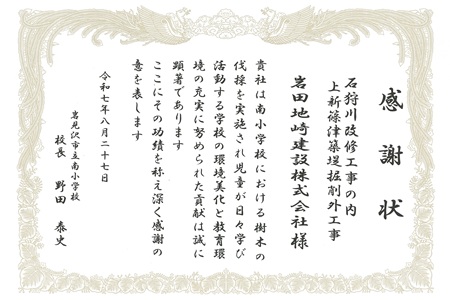 感謝状
石狩川改修工事の内
上新篠津築堤掘削外工事
岩田地崎建設株式会社様
貴社は南小学校における樹木の
伐採を実施され児童が日々学び
活動する学校の環境美化と教育環
境の充実に努められた貢献は誠に
顕著であります
ここにその功績を称え深く感謝の
意を表します
令和七年八月二十七日
岩見沢市立南小学校
校長 野田 泰史